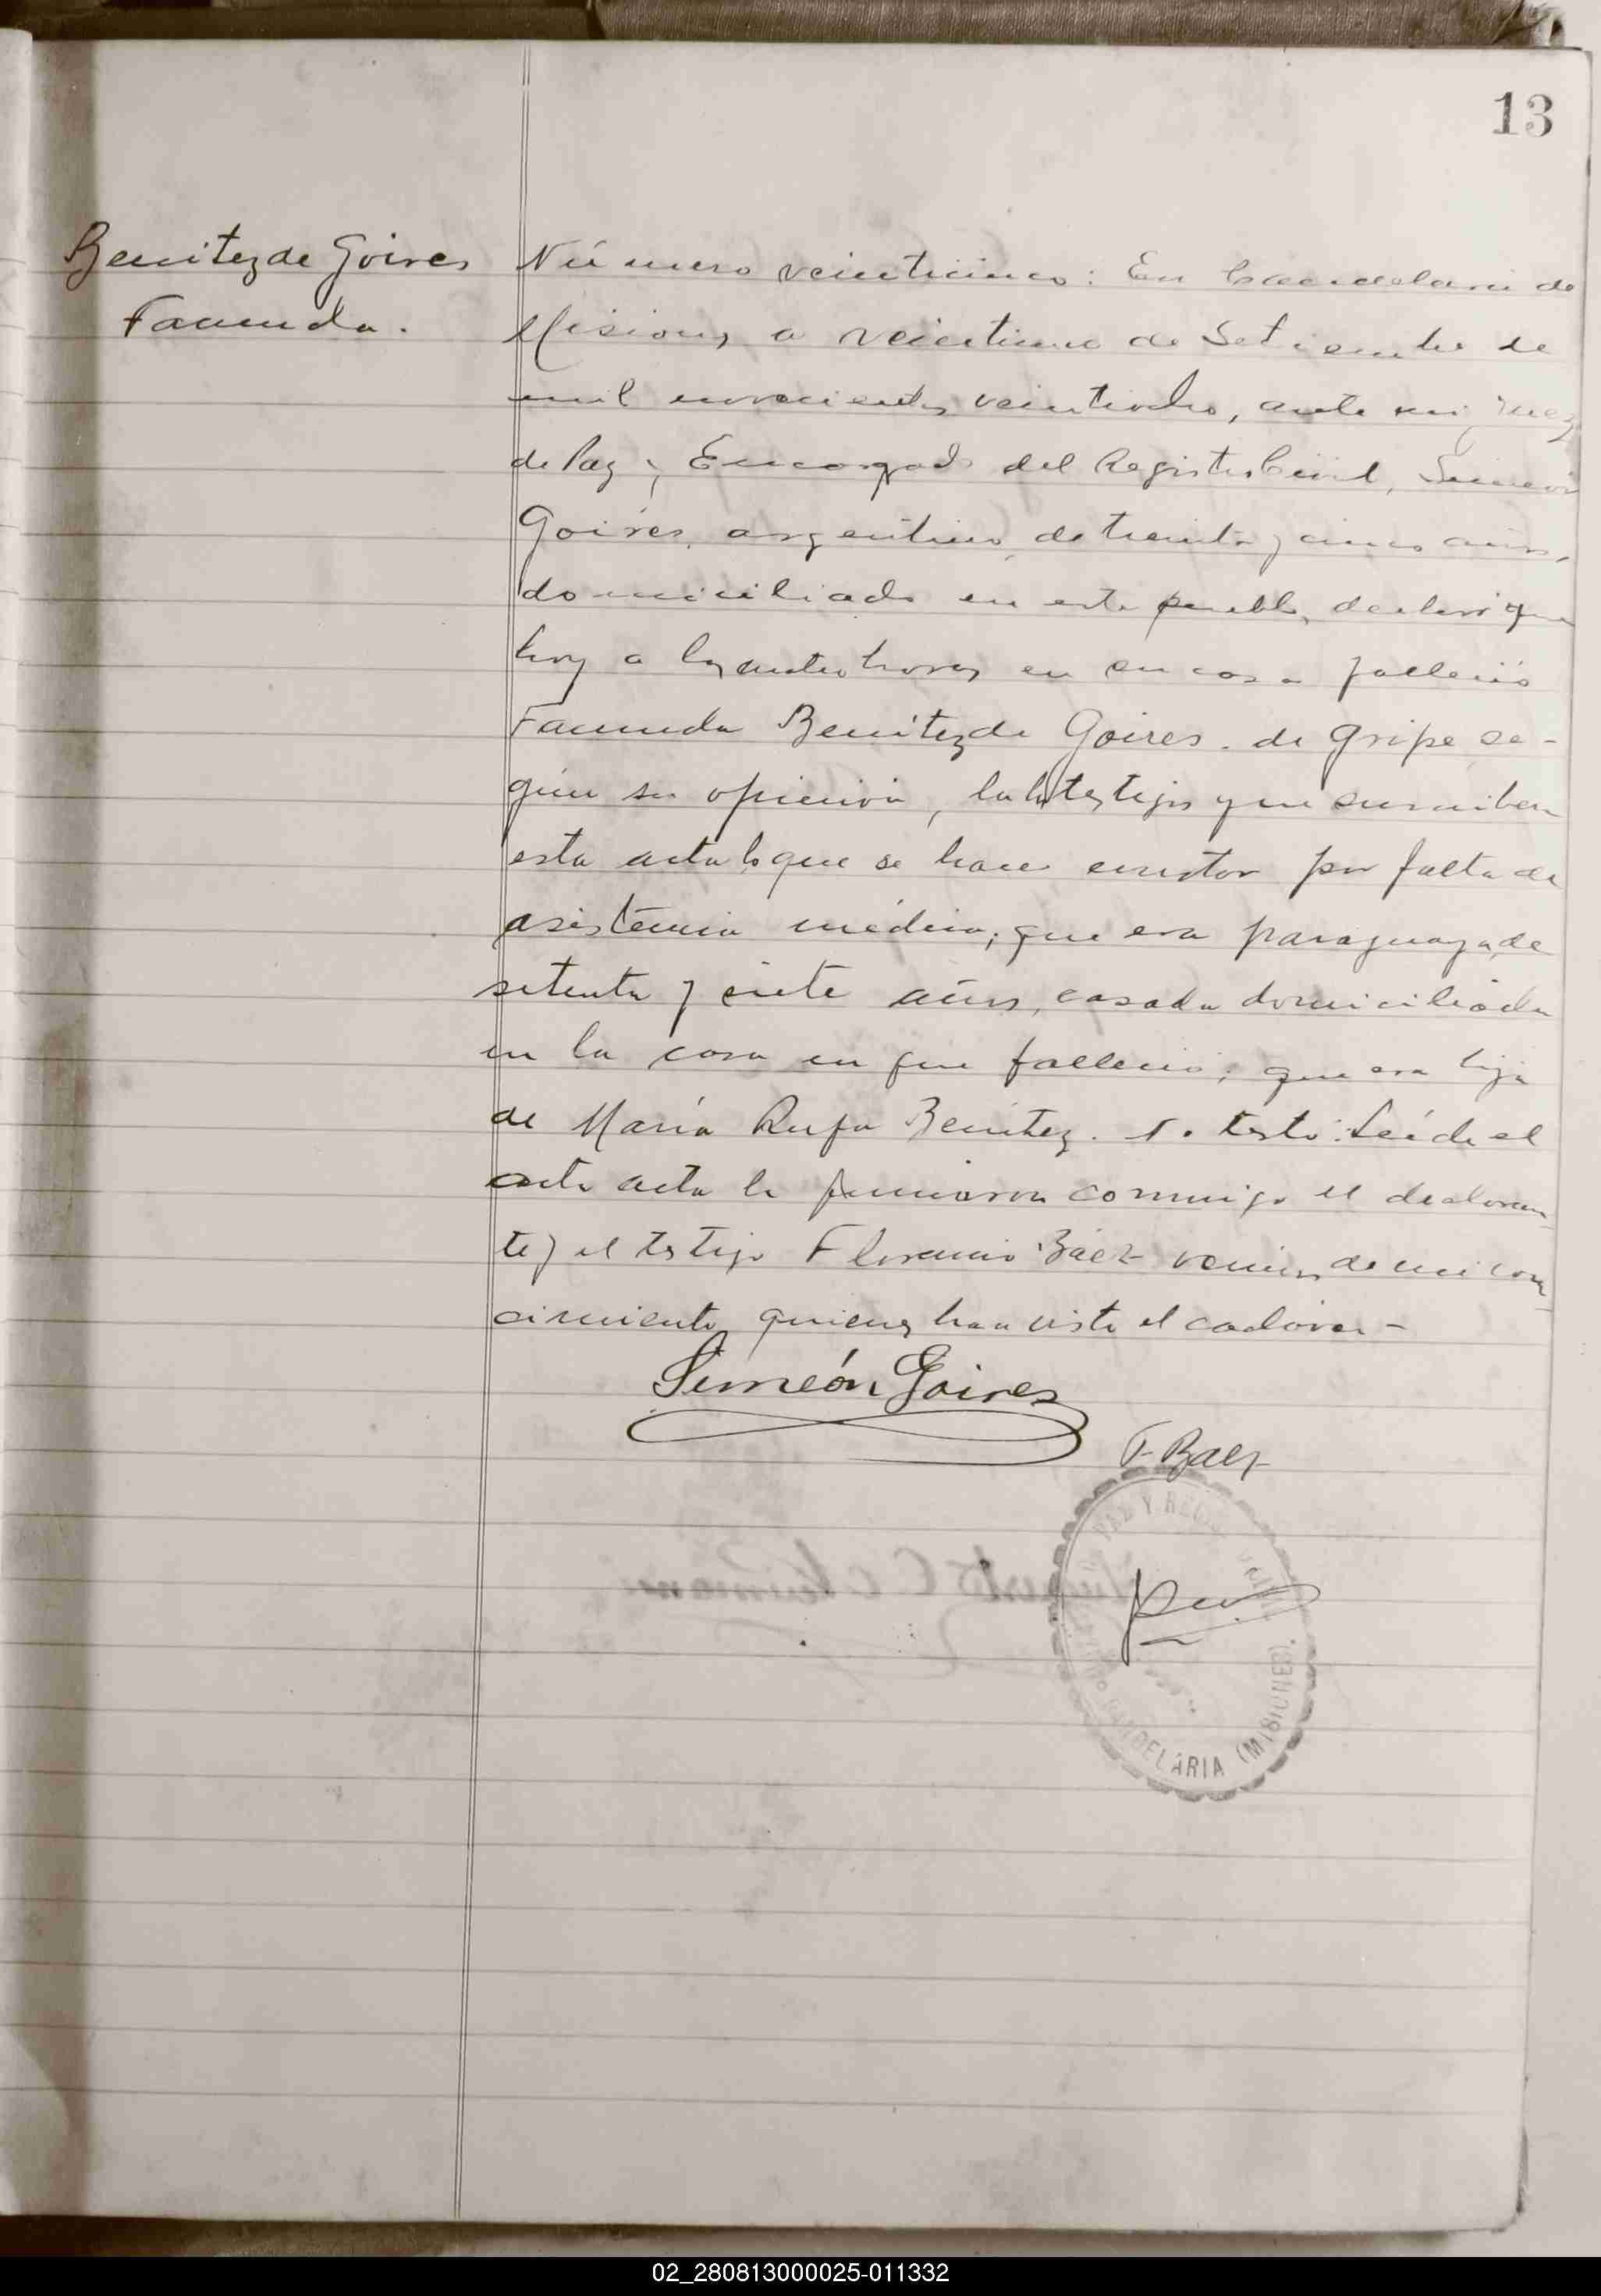 13
Benitez de Goires
Facunda.
Número veinticinco: En Candelaria de
Misiones, a veintiuno de Setiembre de
mil novecientos veintiocho, ante mi, Juez
de Paz y Encargado del Registro Civil, Simeón
Goires, argentino, de treinta y cinco años,
domiciliado en este pueblo, declaró que
hoy a las cuatro horas en su casa falleció
Facunda Benítez de Goires. de gripe se-
gún su opinión, la testigos que suscriben
esta acta lo que se hace constar por falta de
asistencia médica; que era paraguaya, de
setenta y siete años, casada domiciliada
en la casa en que falleció; que era hija
de María Rufa Benítez. No testó. Leída el
acta la firmaron conmigo el declaran-
te y el testigo Florencio Báez vecinos de mi cono-
cimiento quienes han visto el cadáver-
Simeón Goires
F. Baez
PAZ Y REGIS CIVIL
CANDELARIA (MISIONES).
02_280813000025-011332